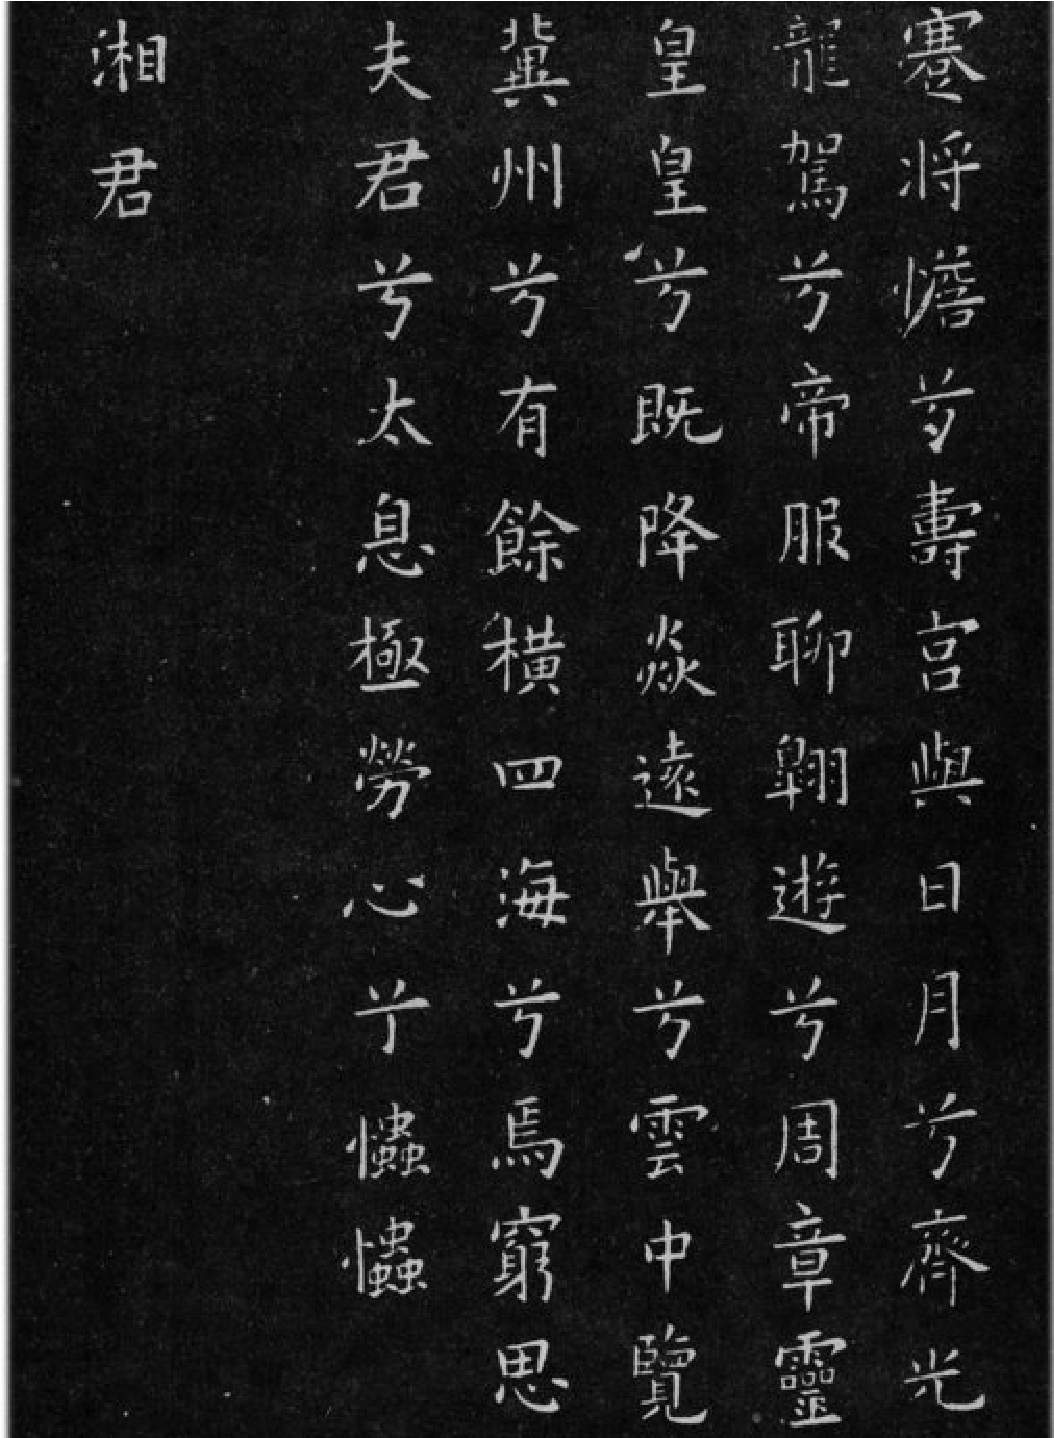 蹇将憺兮壽宫與日月兮齊光
龍駕兮帝服聊翱遊兮周章靈
皇皇兮既降猋遠舉兮雲中覽
冀州兮有餘横四海兮焉窮思
夫君兮太息極勞心兮忡忡
湘君